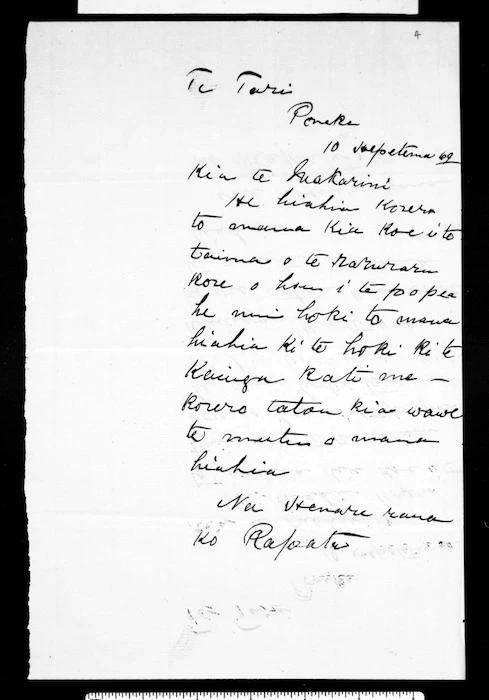 4
Te Tari
Poneke
10 Hepetema 69
Kia te Makarini
He hiahia korero
to maua kia koe i te
taima o te raruraru
kore o hou i te po pea
he nui hoki to maua
hiahia ki te hoki ki te
Kainga kati me -
korero tatou kia wawe
te mutu o maua
hiahia
Na Henare raua
ko Rapata